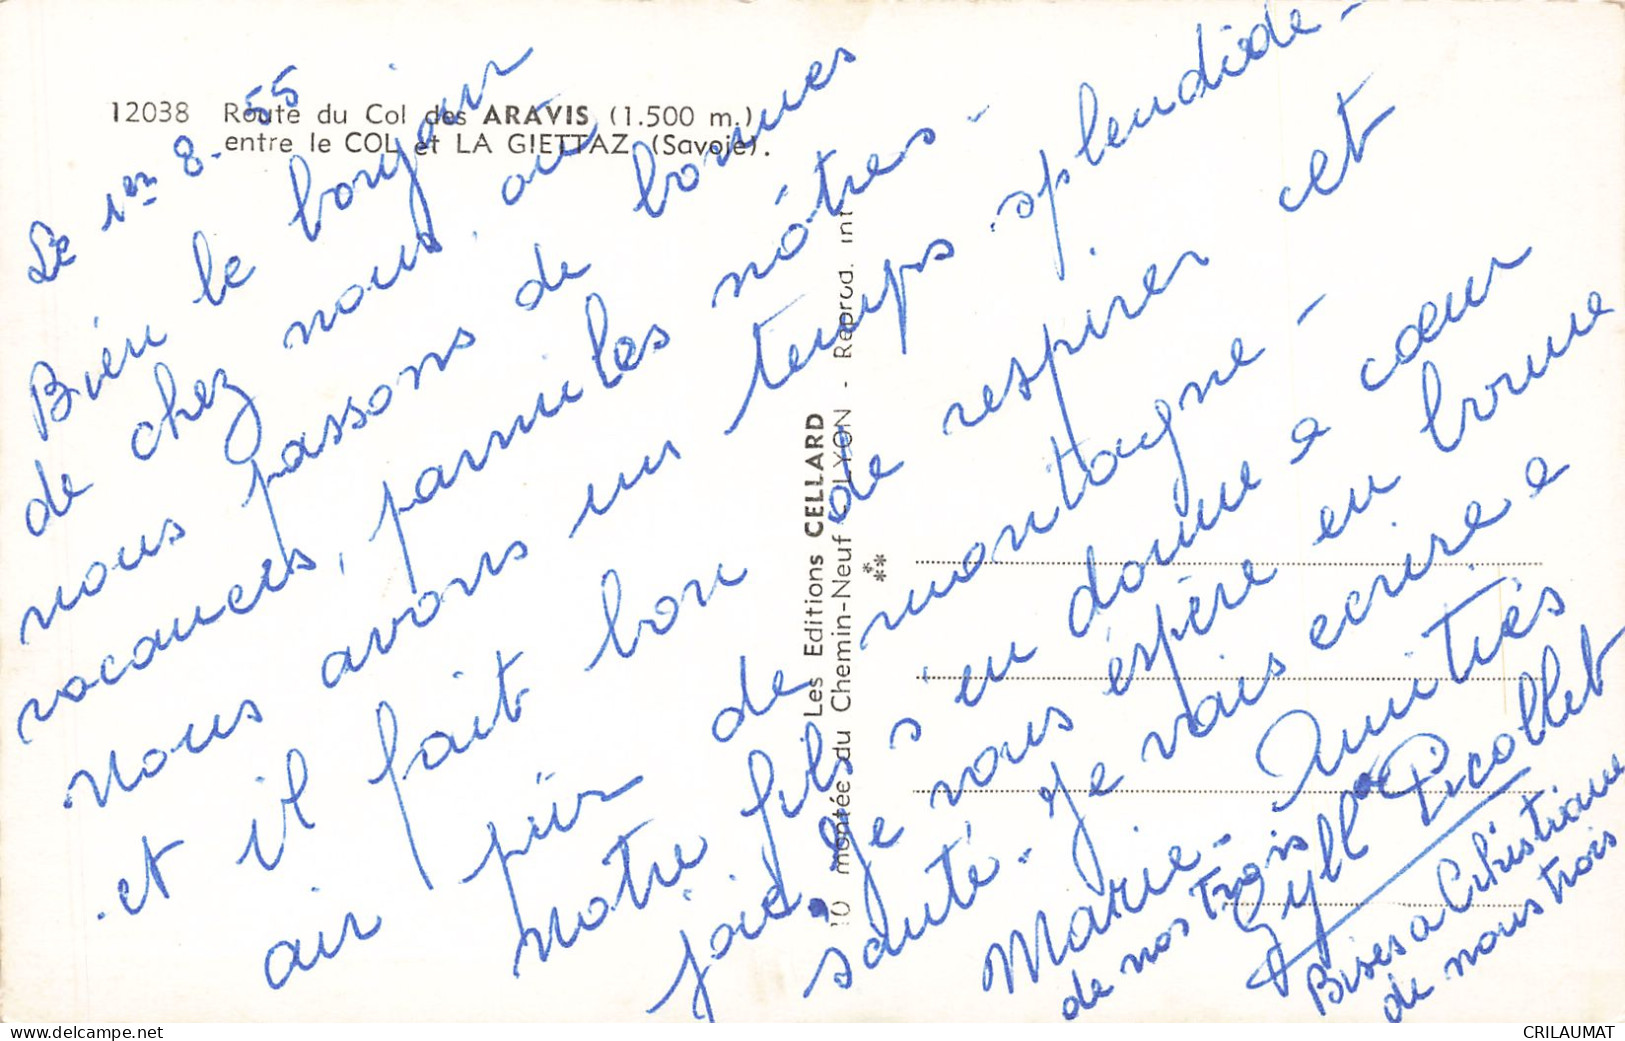 12038 Route du Col des ARAVIS (1.500 m.)
entre le COL et LA GIETTAZ (Savoie).
Le 1er 8-55
Bien le bonjour
de chez nous, où
nous passons de bonnes
vacances, parmi les nôtres -
Nous avons un temps splendide -
et il fait bon de respirer cet
air pur de montagne -
Notre fils s'en donne a cœur
joie. Je vous espère en bonne
santé - Je vais ecrire a
Marie - Amitiés
de nos trois
Picollet
Bises a Christiane
de nous trois
Les Editions CELLARD
10 montée du Chemin-Neuf - LYON - Reprod. int
www.delcampe.net
CRILAUMAT